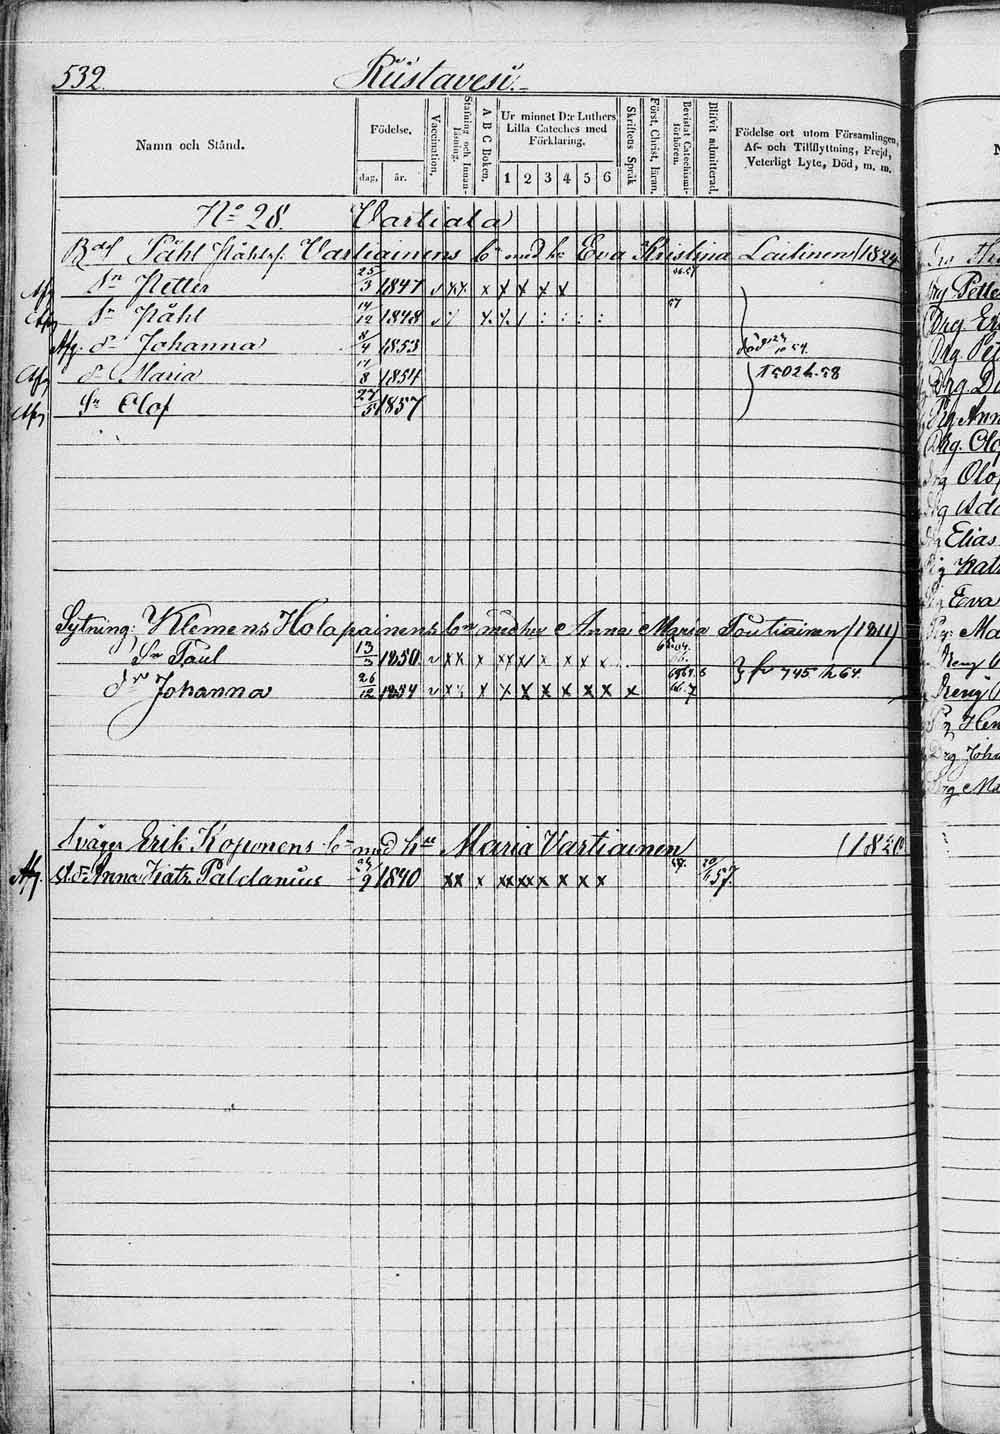 532.
Riistavesi.
Namn och Stånd.
Födelse.
dag.
år.
Vaccination.
Stafning och Innanläsning.
A B C Boken.
Ur minnet D:r Luthers Lilla Cateches med Förklaring.
1 2 3 4 5 6
Skriftens Språk
Först. Christ. läran.
Bevistat Catechismi-förhören.
Blifvit admitterad.
Födelse ort utom Församlingen,
Af- och Tillflyttning, Frejd,
Veterligt Lyte, Död, m. m.
No 28. Vartiala
Påhl Påhlsf. Vartiainens bn med h. Eva Kristina Laitinen (1824
Afg. Sn Petter 25/3 1847 v x x x x x x x
Afg. Sn Påhl 14/12 1848 57
Afg. dr Johanna 8/4 1853 död
Afg. dr Maria 1/8 1854
Afg. Sn Olof 27/5 1857
Sytning: Klemens Holapainens bn med hu Anna Maria Toutiainen (1811)
Sn Paul 13/3 1850 v x x x x x x x x x x
dr Johanna 26/12 1854 v x x x x x x x x x 745 h 64.
Svåger Erik Koponens bn med hu Maria Vartiainen (1820
Afg. Anna Katr. Paldanius 1840 x x x x x x x x x x x 57.
Petter
Drg.
Drg. Pet
Anna
Drg. Olo
Olof
Ada
Elias
Katr
Eva
Ma
Johan
Ma